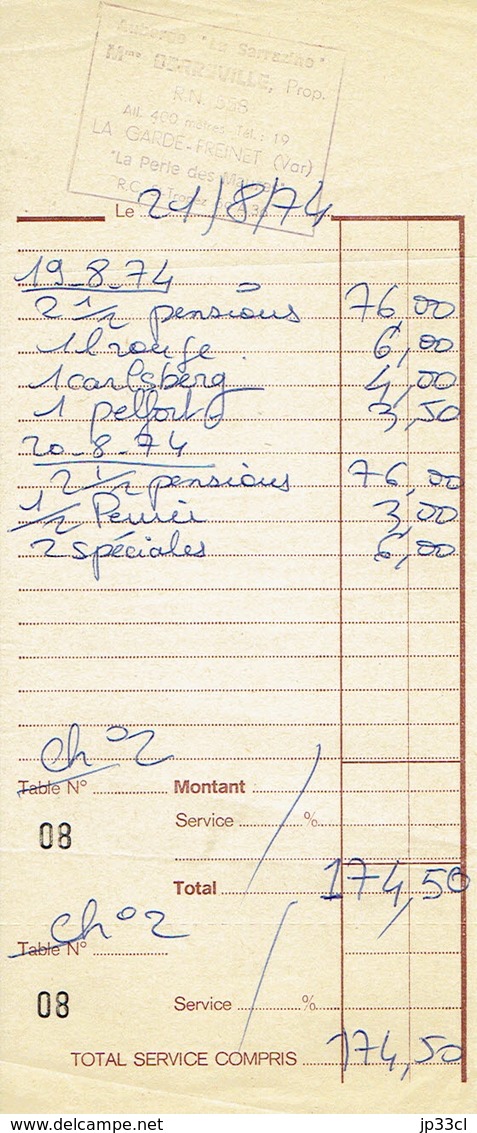 Auberge "Le Sarrazine"
Mme DERREVILLE, Prop.
R.N. 558
Alt. 400 mètres - Tél. : 19
LA GARDE-FREINET (Var)
"La Perle des Maures"
Le 21/8/74
19-8-74
2 1/2 pensions 76,00
1 l rouge. 6,00
1 carlsberg 4,00
1 pelfort 3,50
20-8-74
2 1/2 pensions 76,00
1/2 Perrier 3,00
2 spéciales 6,00
ch° 2
Table N° Montant
Service %
08
Total 174,50
ch° 2
Table N°
08 Service %
TOTAL SERVICE COMPRIS 174,50
www.delcampe.net jp33cl